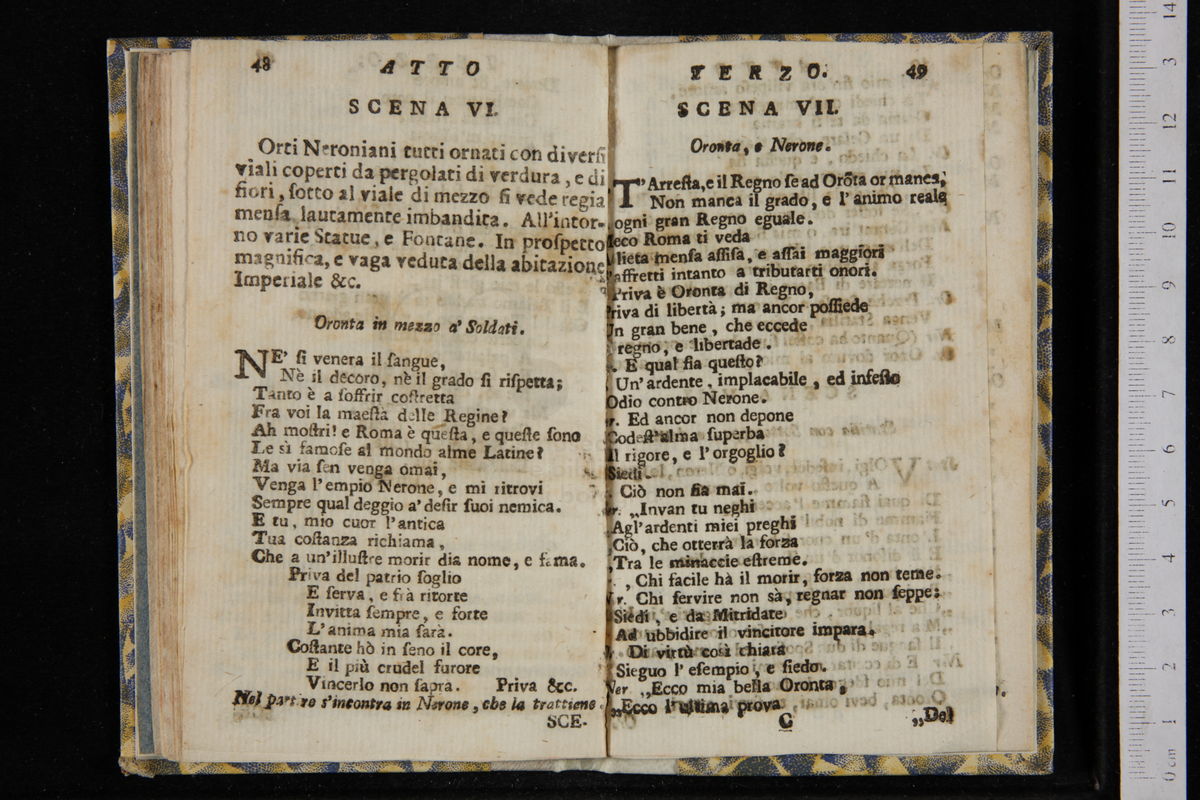 48 ATTO
SCENA VI.
Orti Neroniani tutti ornati con diversi
viali coperti da pergolati di verdura, e di
fiori, sotto al viale di mezzo si vede regia
mensa lautamente imbandita. All'intor-
no varie Statue, e Fontane. In prospetto
magnifica, e vaga veduta della abitazione
Imperiale &c.
Oronta in mezzo a' Soldati.
NE' si venera il sangue,
Nè il decoro, nè il grado si rispetta;
Tanto è a soffrir costretta
Fra voi la maestà delle Regine?
Ah mostri! e Roma è questa, e queste sono
Le sì famose al mondo alme Latine?
Ma via sen venga omai,
Venga l'empio Nerone, e mi ritrovi
Sempre qual deggio a' desir suoi nemica.
E tu, mio cuor l'antica
Tua costanza richiama,
Che a un'illustre morir dia nome, e fama.
Priva del patrio soglio
E serva, e frà ritorte
Invitta sempre, e forte
L'anima mia sarà.
Costante hò in seno il core,
E il più crudel furore
Vincerlo non saprà. Priva &c.
Nel partire s'incontra in Nerone, che la trattiene.
SCE-
TERZO. 49
SCENA VII.
Oronta, e Nerone.
T'Arresta, e il Regno se ad Orōta or manca,
Non manca il grado, e l'animo reale
ogni gran Regno eguale.
eco Roma ti veda
lieta mensa assisa, e assai maggiori
affretti intanto a tributarti onori.
Priva è Oronta di Regno,
riva di libertà; ma ancor possiede
Un gran bene, che eccede
regno, e libertade.
. E qual fia questo?
Un'ardente, implacabile, ed infesto
Odio contro Nerone.
r. Ed ancor non depone
Codest'alma superba
Il rigore, e l'orgoglio?
Siedi.
Ciò non fia mai.
r. „Invan tu neghi
Agl'ardenti miei preghi
Ciò, che otterrà la forza
Tra le minaccie estreme.
, Chi facile hà il morir, forza non teme.
r. Chi servire non sà, regnar non seppe:
Siedi, e da Mitridate
Ad ubbidire il vincitore impara.
Di virtù così chiara
Sieguo l'esempio, e siedo.
Ner „Ecco mia bella Oronta,
„Ecco l'ultima prova
C „Del